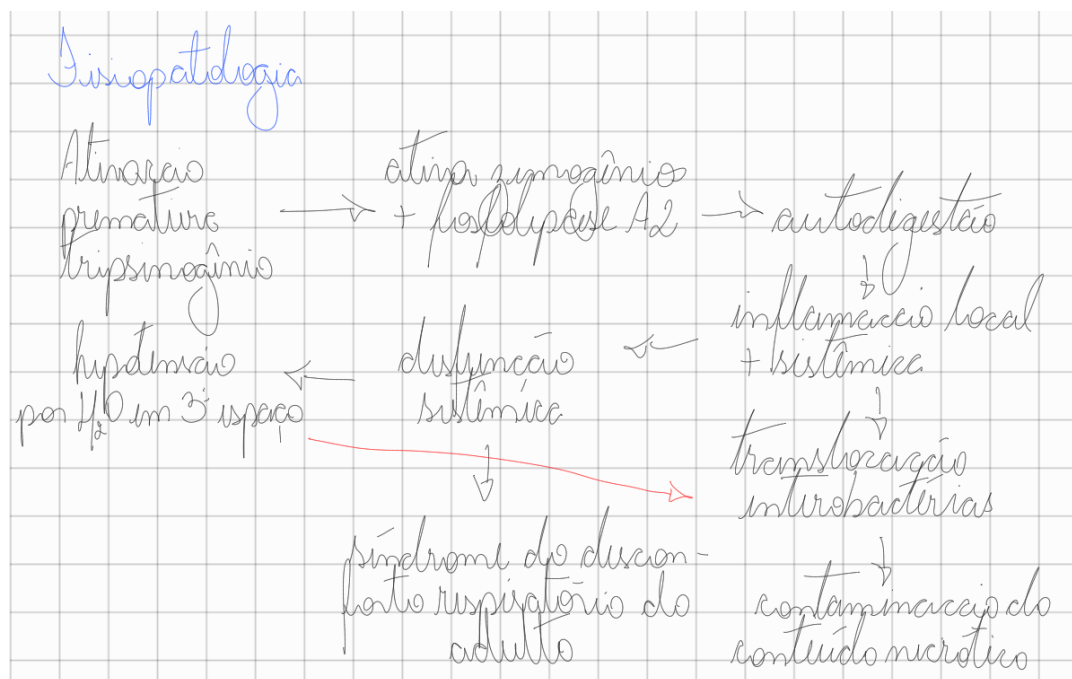 Fisiopatologia
Ativação
prematura
tripsinogênio
ativa zimogênios
+ fosfolipase A2
autodigestão
inflamação local
+ sistêmica
disfunção
sistêmica
hipotensão
por H₂O em 3º espaço
translocação
enterobactérias
síndrome do descon-
forto respiratório do
adulto
contaminação do
conteúdo necrótico